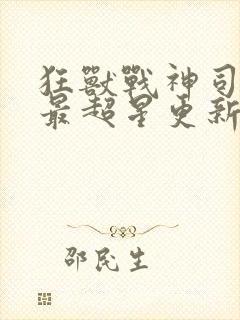 狂獸戰神司
最超星更新
邵民生